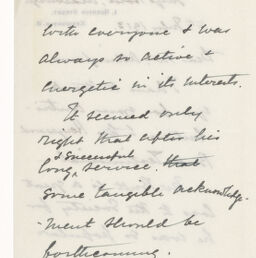 with everyone & was
always so active &
energetic in its interests.
It seemed only
right that after his
& successful
long, service. that
some tangible acknowledge-
-ment should be
forthcoming.